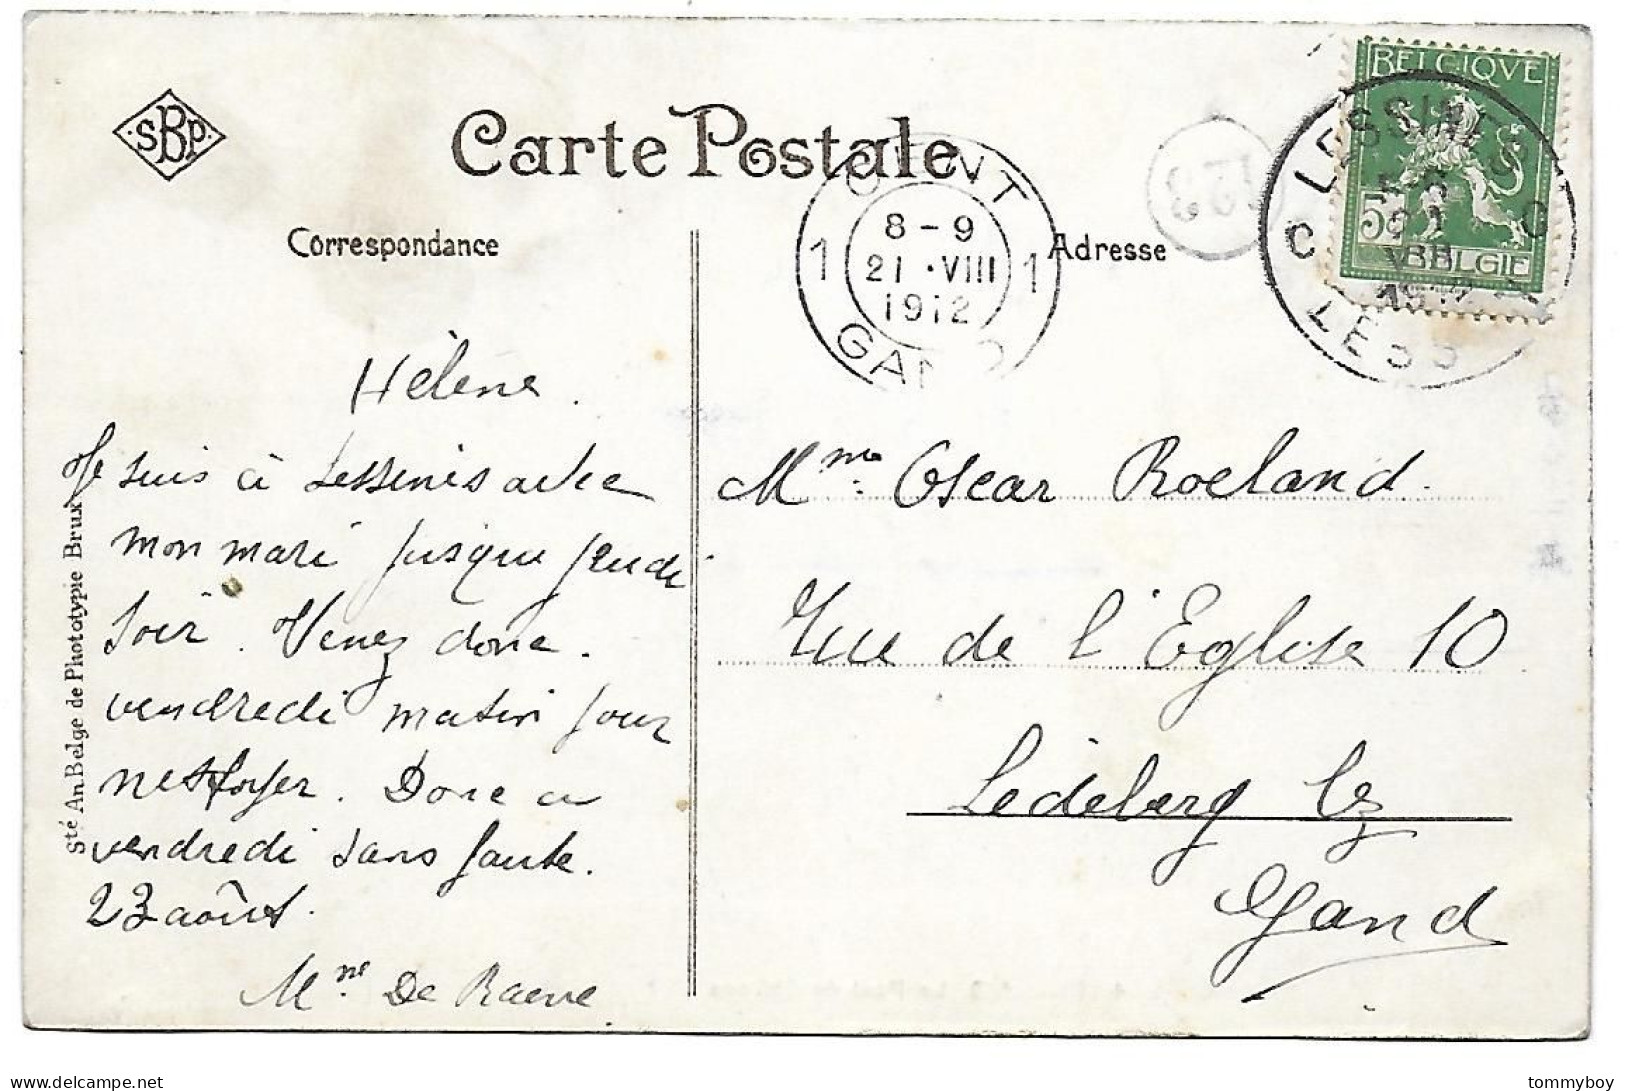 SBP
Carte Postale
Correspondance
Adresse
GENT
1 8-9 1
21 · VIII
1912
GAND
123
BELGIQVE
5
BELGIE
LESSINES
C C
21
VIII
1912
LESS
Hélène.
Je suis à Lessines avec
mon mari jusque jeudi
soir. Venez donc.
vendredi matin pour
nettoyer. Donc a
vendredi sans faute.
23 août.
Mme. De Raeve
Mme. Oscar Roeland.
Rue de l'Eglise 10
Ledeberg lez
Gand
Sté An. Belge de Phototypie Brux
tommyboy
delcampe.net